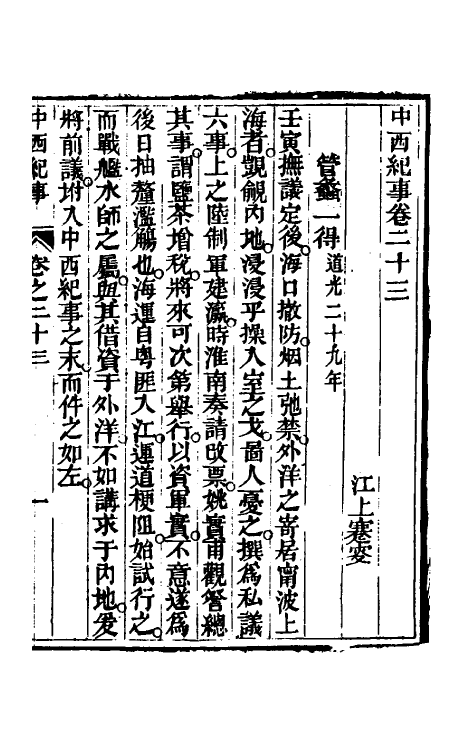 中西紀事卷二十三
江上蹇叟
管蠡一得道光二十九年
壬寅撫議定後海口撤防烟土弛禁外洋之寄居甯波上
海者覬覦內地浸浸乎操入室之戈啚人憂之撰為私議
六事上之陸制軍建瀛時淮南奏請改票姚實甫觀詧總
其事謂鹽茶增稅將來可次第舉行以資軍實不意遂為
後日抽釐濫觴也海運自粵匪入江運道梗阻始試行之
而戰艦水師之屬與其借資于外洋不如講求于內地爰
將前議坿入中西紀事之末而件之如左
中西紀事
卷之二十三
一